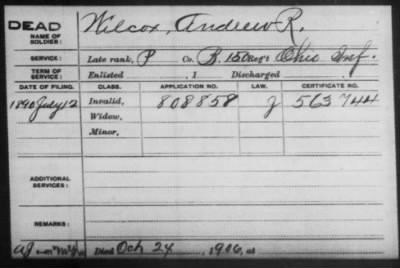 DEAD
NAME OF SOLDIER: Wilcox, Andrew R.
SERVICE: Late rank, P Co. B, 150 Reg't Ohio Inf.
TERM OF SERVICE: Enlisted , 1 Discharged , 1
DATE OF FILING. CLASS. APPLICATION NO. LAW. CERTIFICATE NO.
1890 July 12 Invalid, 808858 J 563744
Widow,
Minor,
ADDITIONAL SERVICES:
REMARKS:
Died Oct 24, 1916, at